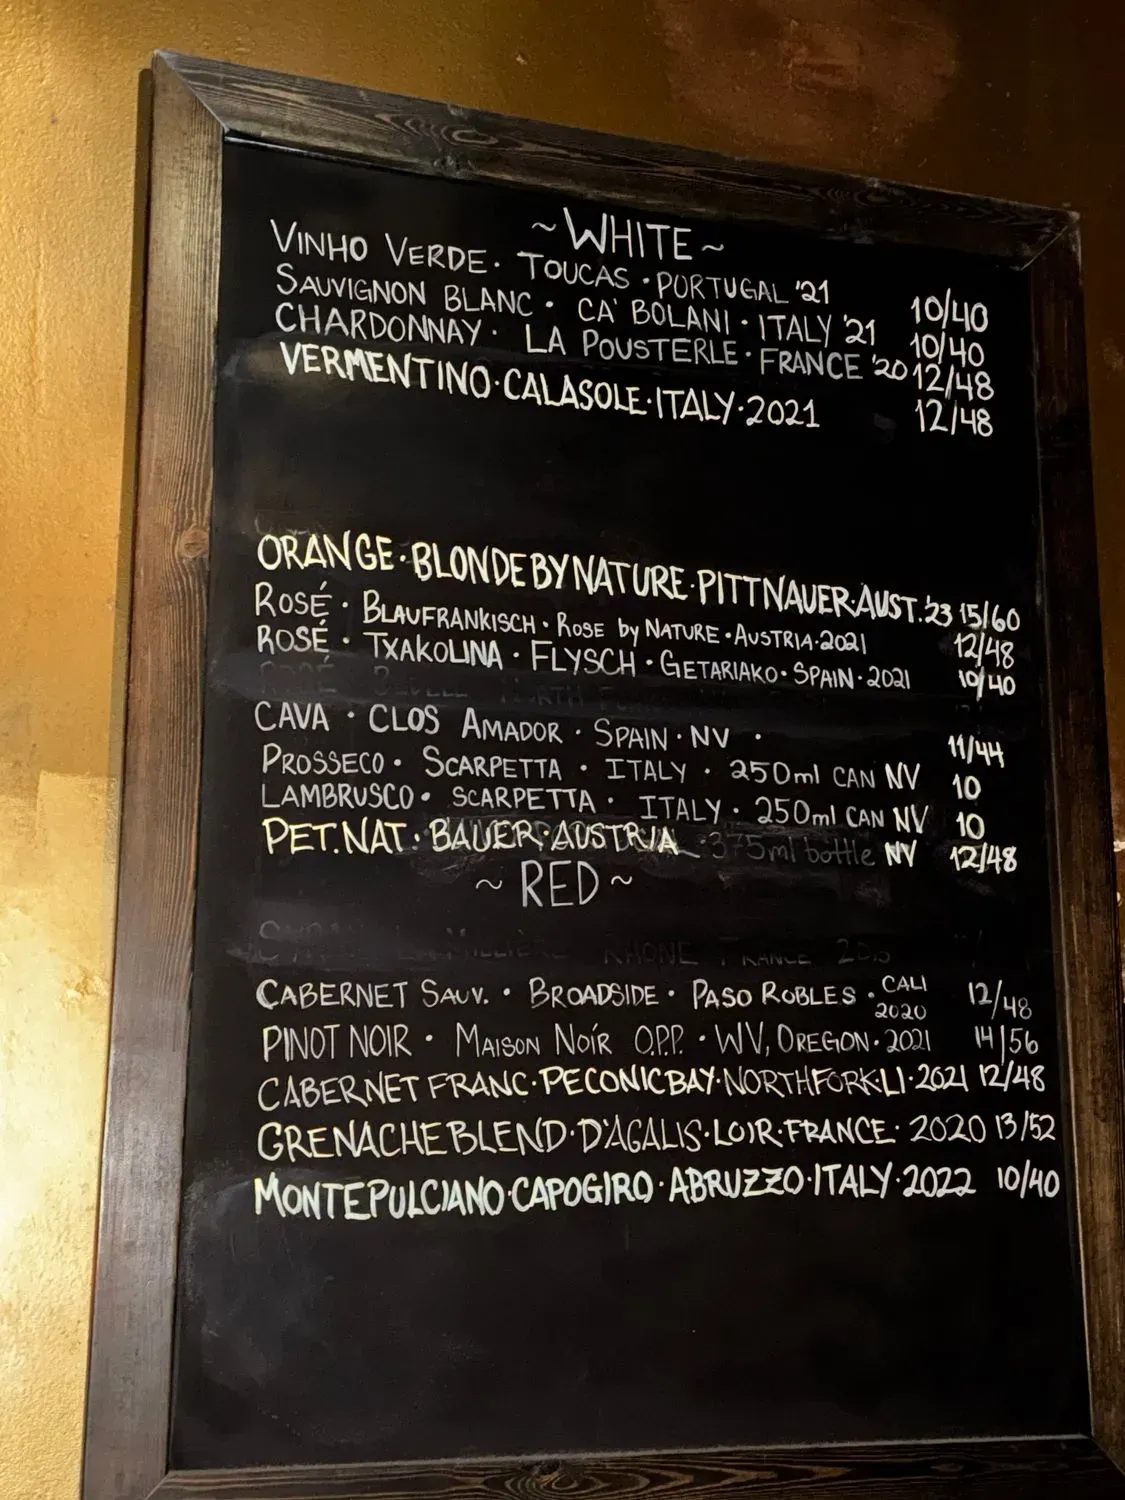 ~WHITE~
VINHO VERDE · TOUCAS · PORTUGAL '21 10/40
SAUVIGNON BLANC · CA' BOLANI · ITALY '21 10/40
CHARDONNAY · LA POUSTERLE · FRANCE '20 12/48
VERMENTINO · CALASOLE · ITALY · 2021 12/48
ORANGE · BLONDE BY NATURE · PITTNAUER · AUST. '23 15/60
ROSÉ · BLAUFRANKISCH · ROSE by NATURE · AUSTRIA · 2021 12/48
ROSÉ · TXAKOLINA · FLYSCH · GETARIAKO · SPAIN · 2021 10/40
CAVA · CLOS AMADOR · SPAIN · NV · 11/44
PROSSECO · SCARPETTA · ITALY · 250ml CAN NV 10
LAMBRUSCO · SCARPETTA · ITALY · 250ml CAN NV 10
PET.NAT · BAUER · AUSTRIA · 375ml bottle NV 12/48
~ RED ~
CABERNET SAUV. · BROADSIDE · PASO ROBLES · CALI 2020 12/48
PINOT NOIR · MAISON NOÍR O.P.P. · WV, OREGON · 2021 14/56
CABERNET FRANC · PECONIC BAY · NORTH FORK · LI · 2021 12/48
GRENACHE BLEND · D'AGALIS · LOIR · FRANCE · 2020 13/52
MONTEPULCIANO · CAPOGIRO · ABRUZZO · ITALY · 2022 10/40